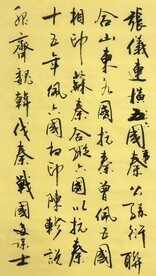 張儀連橫五國秦公孫衍聯
合山東九國抗秦曾佩五國
相印蘇秦合縱六國以抗秦
十五年佩六國相印陳軫說
服齊魏韓伐秦戰國文士